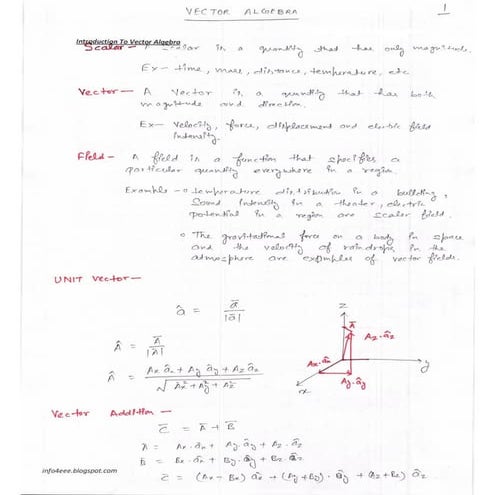 VECTOR ALGEBRA
1
Introduction To Vector Algebra
Scalar – A scalar is a quantity that has only magnitude.
Ex – time, mass, distance, temperature, etc
Vector – A Vector is a quantity that has both
magnitude and direction.
Ex – Velocity, force, displacement and electric field
intensity.
Field – A field is a function that specifies a
particular quantity everywhere in a region.
Example – o temperature distribution in a building,
Sound intensity in a theater, electric
potential in a region are scalar field.
o The gravitational force on a body in space
and the velocity of raindrops in the
atmosphere are examples of vector fields.
UNIT Vector –
â = a̅ / |a̅|
Â = A̅ / |A̅|
Â = Ax âx + Ay ây + Az âz / √Ax² + Ay² + Az²
z
A̅
Az·âz
Ax·âx
y
x
Ay·ây
Vector Addition –
C̅ = A̅ + B̅
A̅ = Ax·âx + Ay·ây + Az·âz
B̅ = Bx·âx + By·ây + Bz·âz
C̅ = (Ax + Bx) âx + (Ay + By)·ây + (Az + Bz) âz
info4eee.blogspot.com